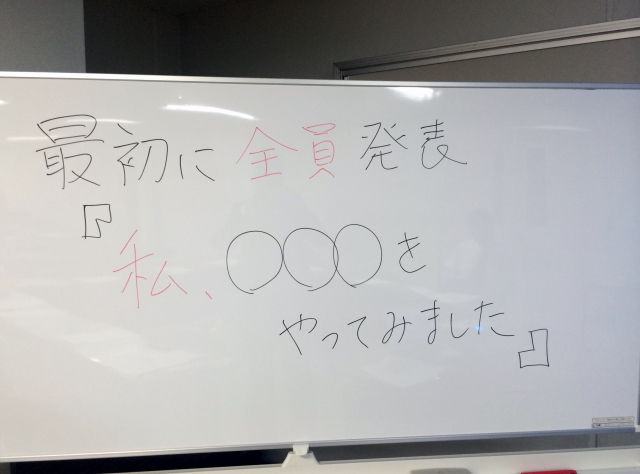 最初に全員発表
『私、○○○を
やってみました』